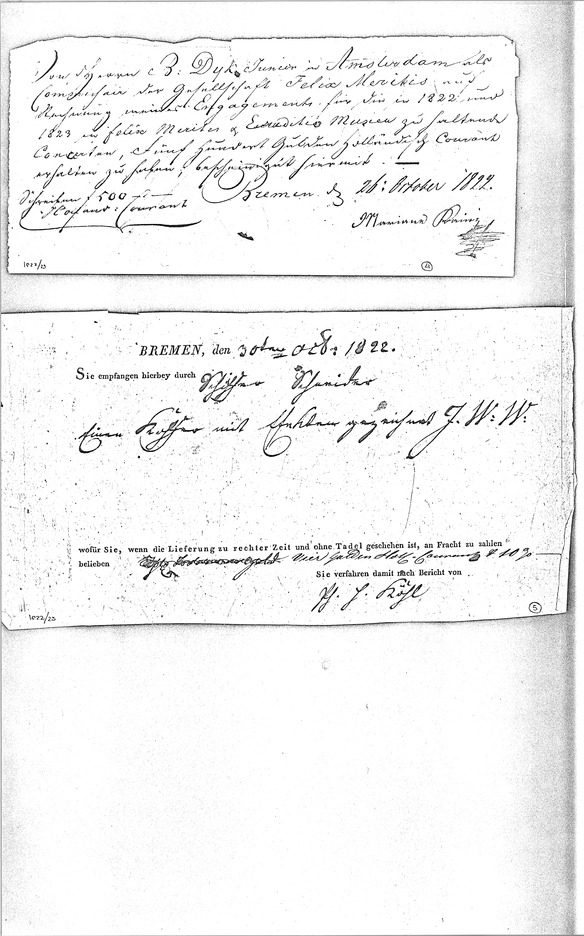 Von Herrn B: Dyk Junior in Amsterdam als
Commissair der Gesellschaft Felix Meritis, auf
Rechnung meines Engagements für die in 1822 und
1823 in Felix Meritis & Eruditio Musica zu haltende
Concerten, Fünf Hundert Gulden Holländisch Courant
erhalten zu haben, bescheinige hiermit. —
Schreiben f 500 —
Holland: Courant
Bremen, d 26: October 1822.
Mariane Kainz
1822/23
BREMEN, den 30ten Octb: 1822.
Sie empfangen hierbey durch Schiffer Schneider
Einen Koffer mit Effekten gezeichnet J. W: W:
wofür Sie, wenn die Lieferung zu rechter Zeit und ohne Tadel geschehen ist, an Fracht zu zahlen
belieben vier Gulden Holl. Courant & 10 %
Sie verfahren damit nach Bericht von
1822/23
5